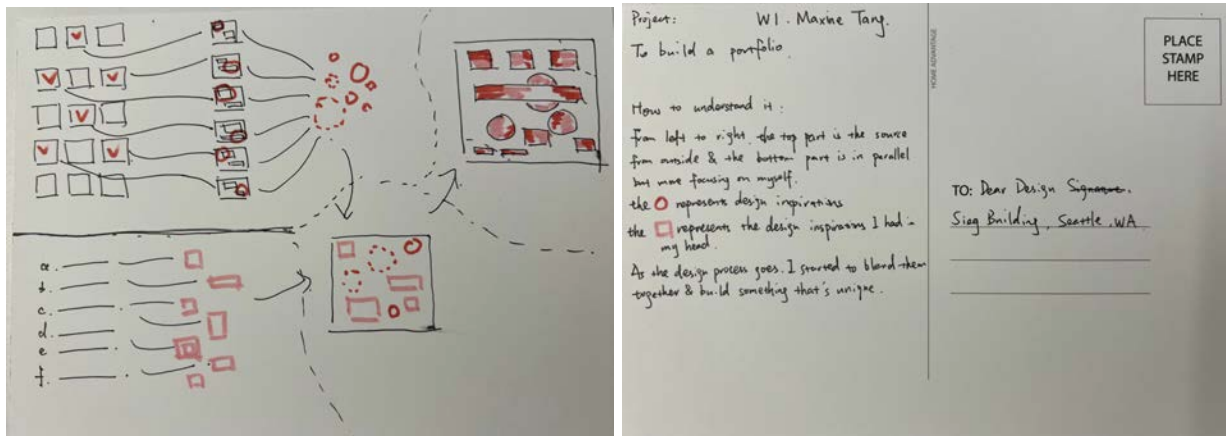 a.
b.
c.
d.
e
f.
Project: W1. Maxine Tang.
To build a portfolio.
How to understand it:
From left to right, the top part is the source
from outside & the bottom part is in parallel
but more focusing on myself.
the represents design inspirations
the represents the design inspirations I had in
my head.
As the design process goes. I started to blend them
together & build something that's unique.
HOME ADVANTAGE
PLACE
STAMP
HERE
TO: Dear Design Signature.
Sieg Building, Seattle, WA